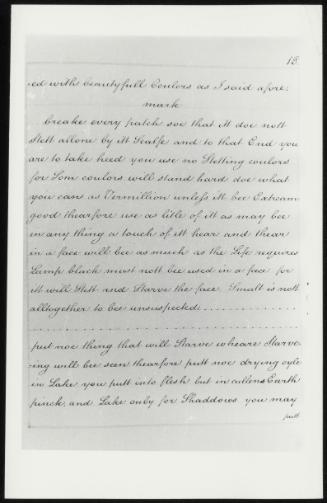 18.
ed with beautyfull Coulors as I said afore:
mark
breake every patch soe that itt doe nott
Stett allone by itt Sealfe and to that End you
are to take heed you use no Stetting coulors
for Som coulors will stand hard doe what
you cann as Vermillion unless itt bee Extream
good thearfore use as litle of itt as may bee
in any thing a touch of itt hear and thear
in a face will bee as much as the Life requires
Lamp black must nott bee used in a face for
itt will Stett and Starve the face. Smalt is nott
alltogether to bee unsuspected
putt noe thing that will Starve wheare Starve
ing will bee seen thearfore putt noe drying oyle
in Lake you putt into flesh but in cullens Earth
pinck, and Lake only for Shaddows you may
putt